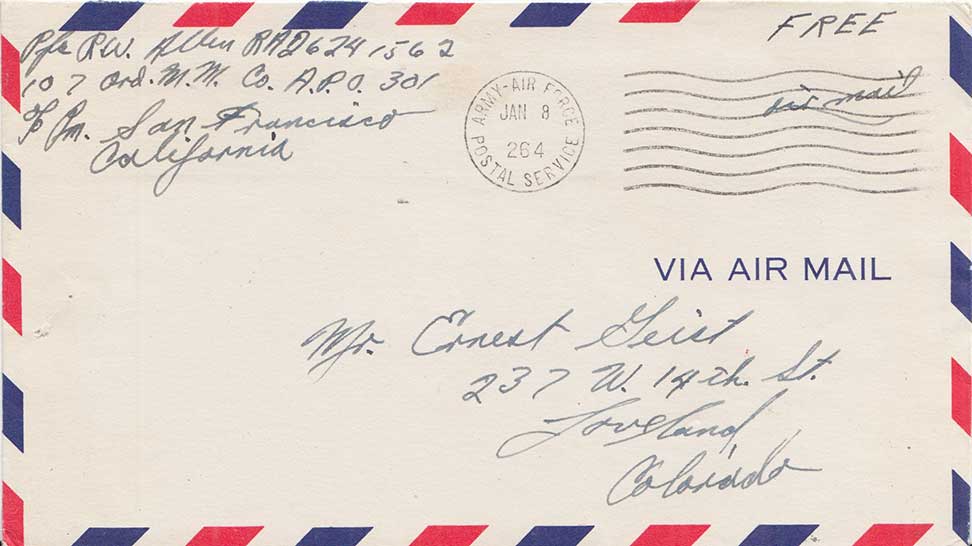 FREE
Pfc R.W. Allen RA26241562
107 Ord. M.M. Co. A.P.O. 301
℅ Pm. San Francisco
California
ARMY-AIR FORCE
JAN 8
264
POSTAL SERVICE
air mail
VIA AIR MAIL
Mr. Ernest Geist
237 W. 14th. St.
Loveland,
Colorado